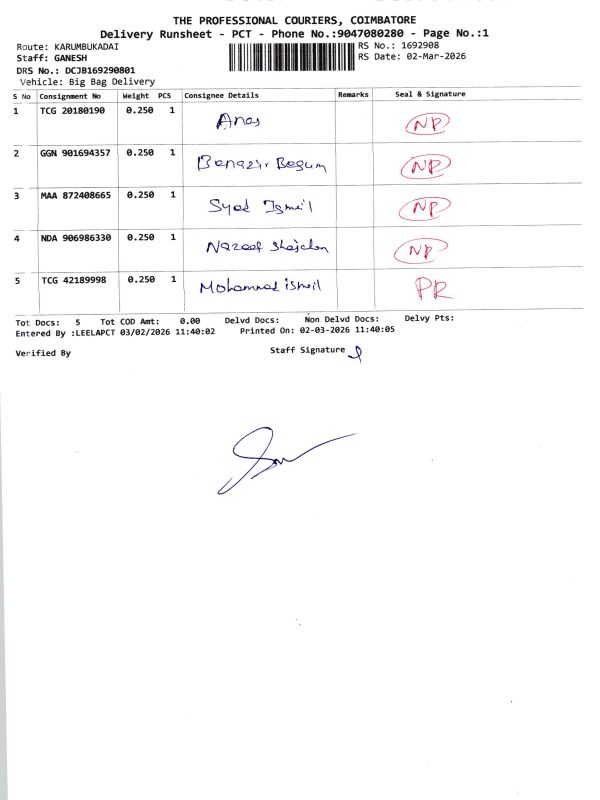 THE PROFESSIONAL COURIERS, COIMBATORE
Delivery Runsheet - PCT - Phone No.:9047080280 - Page No.:1
Route: KARUMBUKADAI
RS No.: 1692908
Staff: GANESH
RS Date: 02-Mar-2026
DRS No.: DCJB169290801
Vehicle: Big Bag Delivery
S No Consignment No Weight PCS Consignee Details Remarks Seal & Signature
1 TCG 20180190 0.250 1 Anas NP
2 GGN 901694357 0.250 1 Benazir Begum NP
3 MAA 872408665 0.250 1 Syed Ismeil NP
4 NDA 906986330 0.250 1 NP
5 TCG 42189998 0.250 1 Mohammad ismeil PR
Tot Docs: 5 Tot COD Amt: 0.00 Delvd Docs: Non Delvd Docs: Delvy Pts:
Entered By :LEELAPCT 03/02/2026 11:40:02 Printed On: 02-03-2026 11:40:05
Verified By Staff Signature